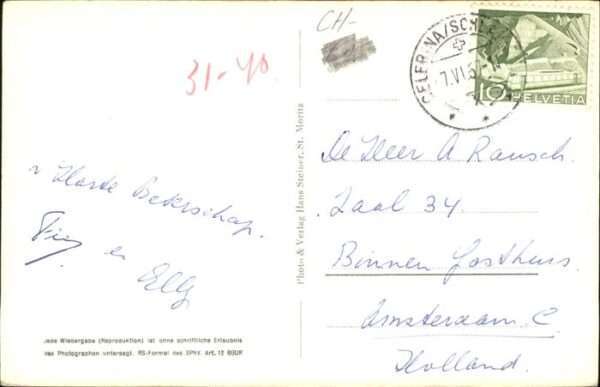 CH-
31-40
CELERINA/SCHL
7.VI.5
10 HELVETIA
De Heer A Rausch.
Zaal 34.
Binnen Gasthuis
Amsterdam C.
Holland.
Harte Beterschap.
Fie en
Elly
Photo & Verlag Hans Steiner, St. Moritz
Jede Wiedergabe (Reproduktion) ist ohne schriftliche Erlaubnis
des Photographen untersagt. RS-Formel des SPHV. Art. 12 BGUR